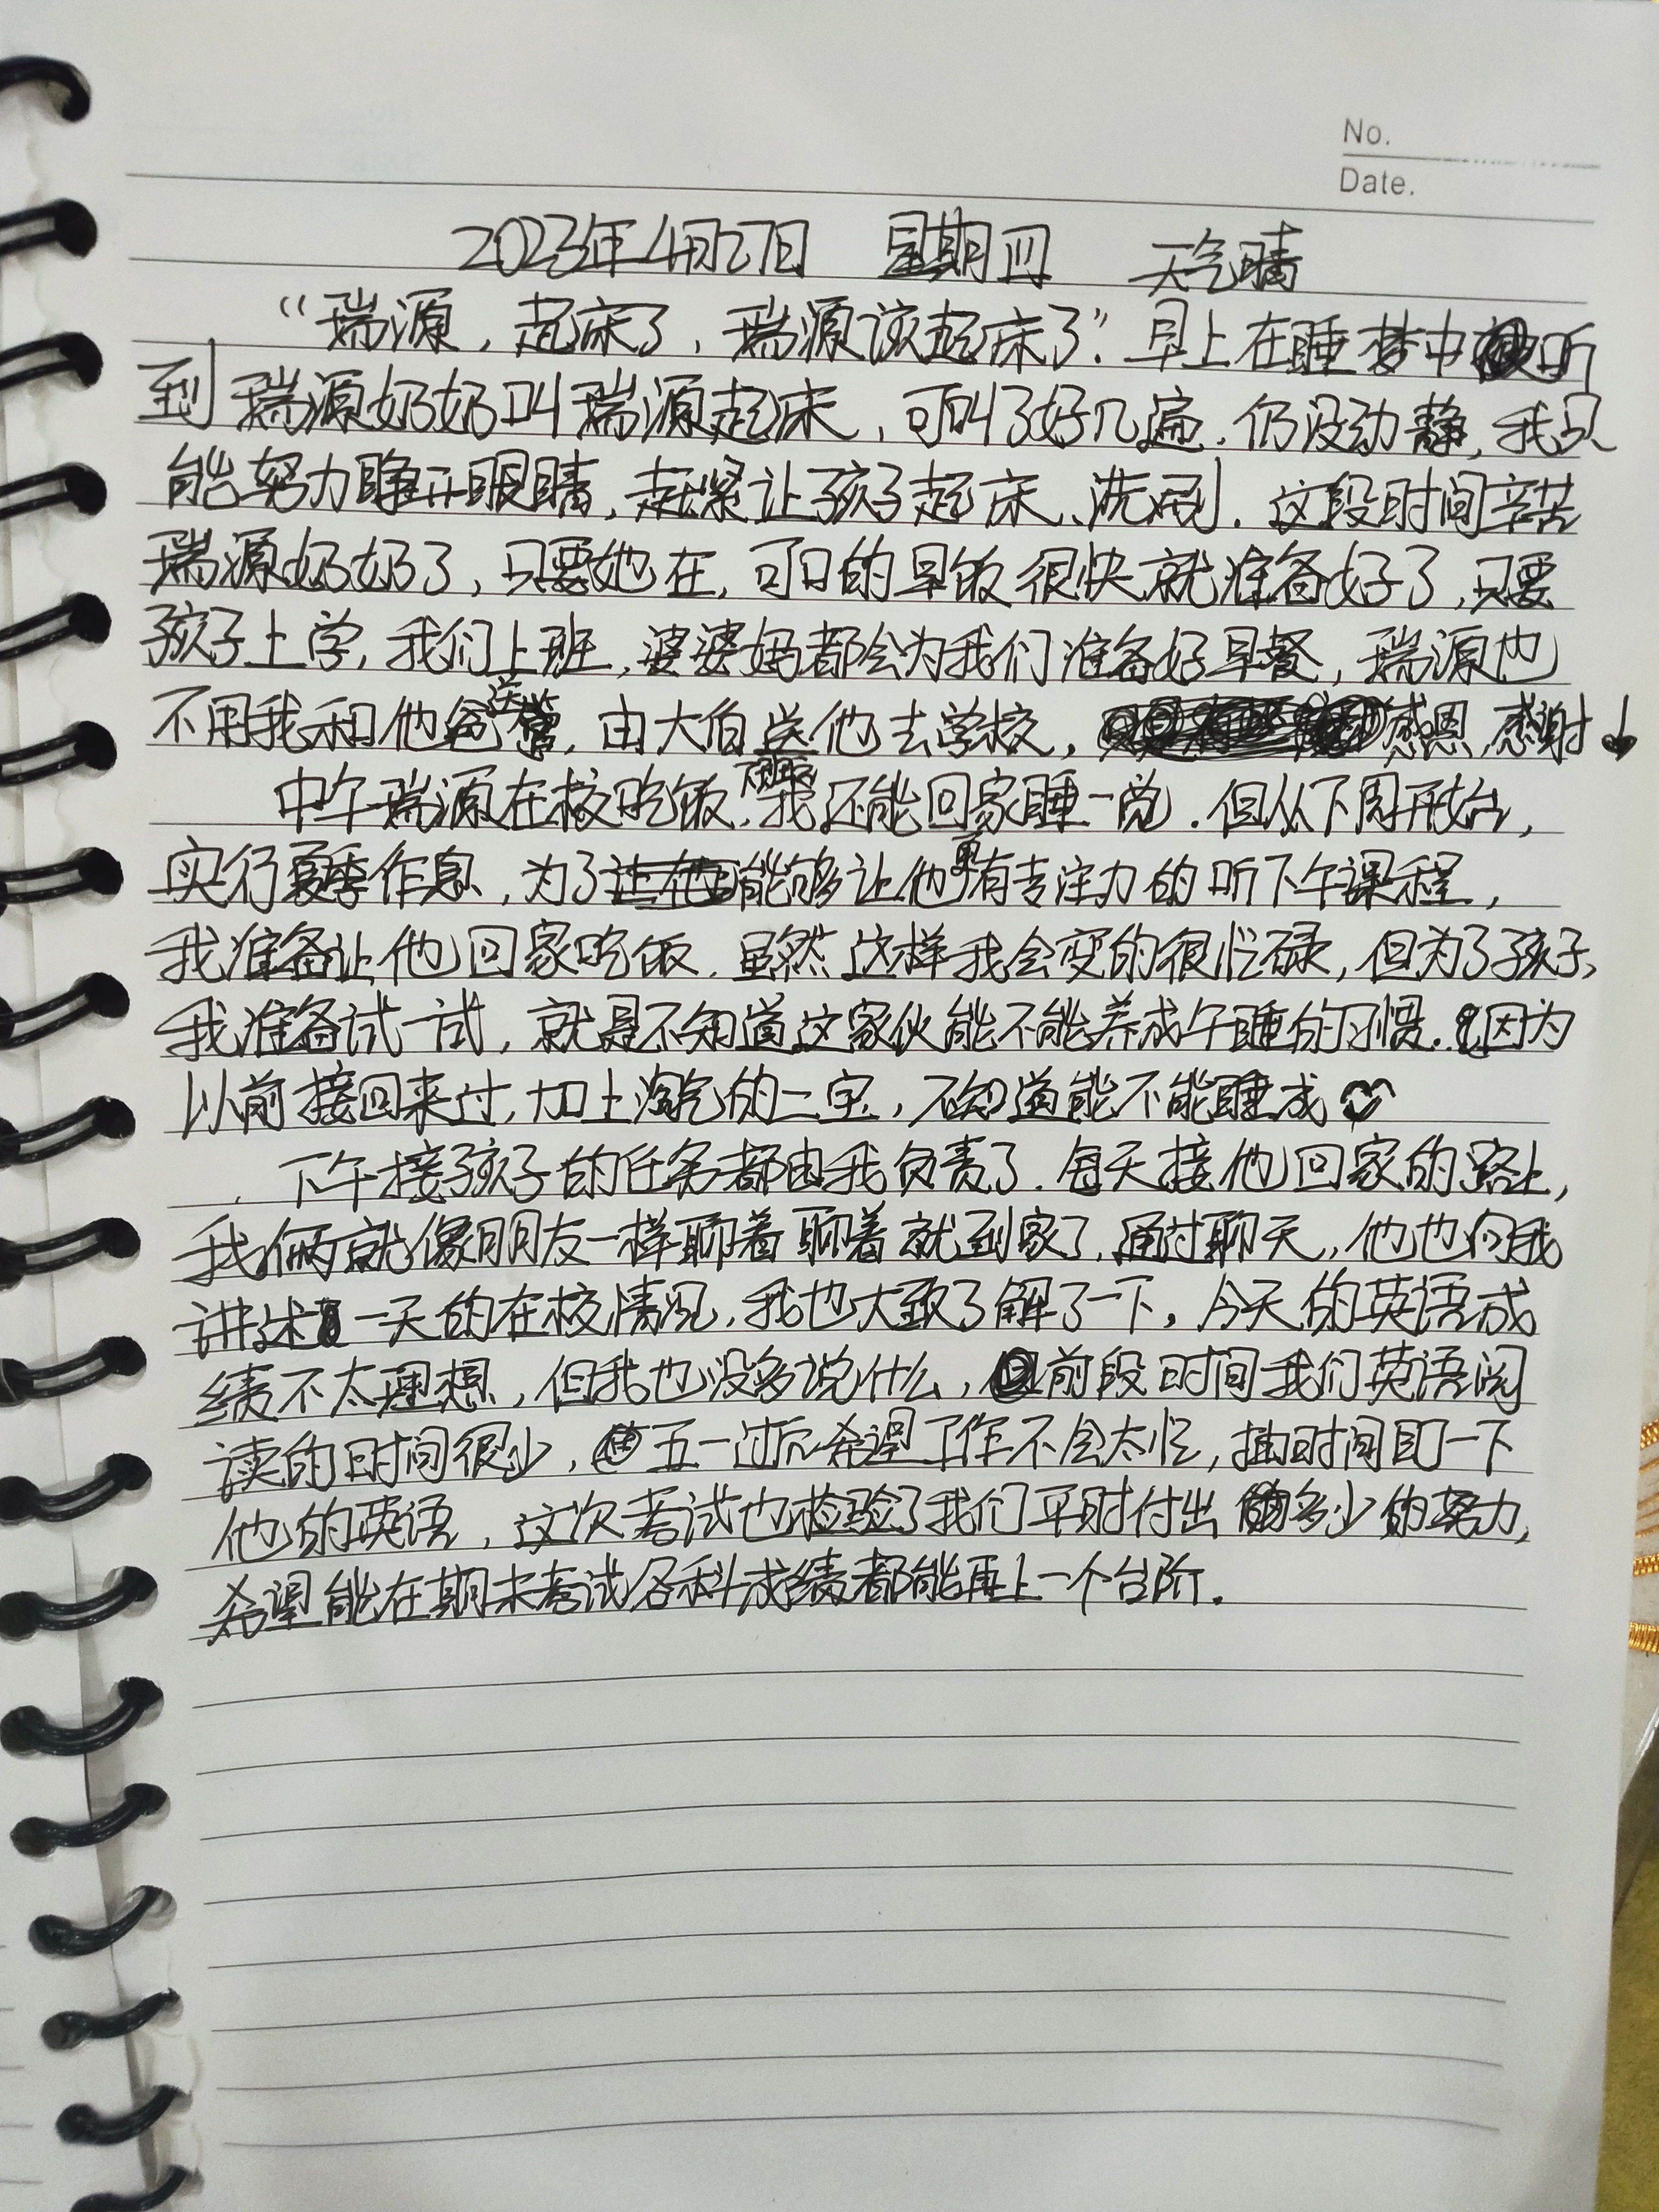 No.
Date.
2023年4月27日 星期四 天气晴
“瑞源，起床了，瑞源该起床了”.早上在睡梦中听
到瑞源奶奶叫瑞源起床，可叫了好几遍.仍没动静,我只
能努力睁开眼睛,赶紧让孩子起床、洗刷.这段时间辛苦
瑞源奶奶了,只要她在,可口的早饭很快就准备好了,只要
孩子上学,我们上班,婆婆妈都会为我们准备好早餐,瑞源也
不用我和他爸送,由大伯送他去学校,感恩,感谢
中午瑞源在校吃饭,我还能回家睡一觉.但从下周开始,
实行夏季作息,为了能够让他更有专注力的听下午课程,
我准备让他回家吃饭.虽然这样我会变的很忙碌,但为了孩子,
我准备试一试,就是不知道这家伙能不能养成午睡的习惯.因为
以前接回来过,加上淘气的二宝,不知道能不能睡成
下午接孩子的任务都由我负责了.每天接他回家的路上,
我俩就像朋友一样聊着聊着就到家了,通过聊天,他也向我
讲述一天的在校情况,我也大致了解了一下,今天的英语成
绩不太理想,但我也没多说什么,前段时间我们英语阅
读的时间很少,五一过后希望工作不会太忙,抽时间盯一下
他的英语,这次考试也检验了我们平时付出多少的努力,
希望能在期末考试各科成绩都能再上一个台阶.